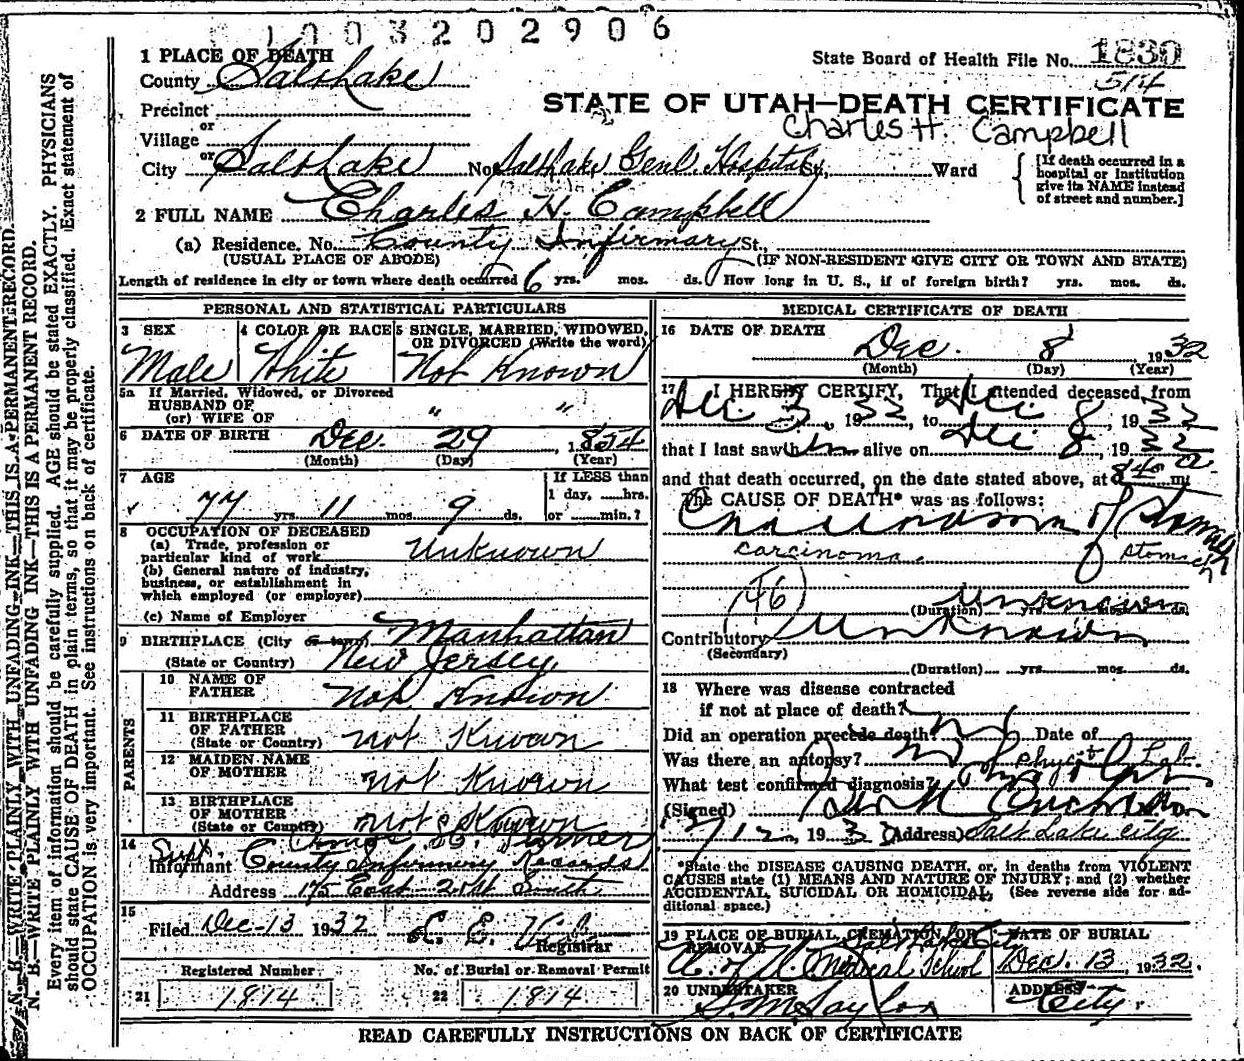 1003202906
1 PLACE OF DEATH
State Board of Health File No. 1830
County Salt Lake
514
Precinct
STATE OF UTAH—DEATH CERTIFICATE
or
Charles H. Campbell
Village
or
City Salt Lake No. Salt Lake Genl. Hospital St., Ward
[If death occurred in a
hospital or institution
give its NAME instead
of street and number.]
2 FULL NAME Charles H. Campbell
(a) Residence. No. County Infirmary St.,
(USUAL PLACE OF ABODE) (IF NON-RESIDENT GIVE CITY OR TOWN AND STATE)
Length of residence in city or town where death occurred 6 yrs. mos. ds. How long in U. S., if of foreign birth? yrs. mos. ds.
PERSONAL AND STATISTICAL PARTICULARS
3 SEX
Male
4 COLOR OR RACE
White
5 SINGLE, MARRIED, WIDOWED,
OR DIVORCED (Write the word)
Not Known
5a If Married, Widowed, or Divorced
HUSBAND OF
(or) WIFE OF " "
6 DATE OF BIRTH Dec. 29 1854
(Month) (Day) (Year)
7 AGE
77 yrs. 11 mos. 9 ds.
If LESS than
1 day, hrs.
or min.?
8 OCCUPATION OF DECEASED
(a) Trade, profession or
particular kind of work Unknown
(b) General nature of industry,
business, or establishment in
which employed (or employer)
(c) Name of Employer
9 BIRTHPLACE (City or town) Manhattan
(State or Country) New Jersey
PARENTS
10 NAME OF
FATHER Not Known
11 BIRTHPLACE
OF FATHER
(State or Country) Not Known
12 MAIDEN NAME
OF MOTHER Not Known
13 BIRTHPLACE
OF MOTHER
(State or Country) Not Known
14 Supt. Turner
Informant County Infirmary Records
Address 175 East 21st South
15
Filed Dec-13 1932
Registrar
Registered Number
21 1814
No. of Burial or Removal Permit
22 1814
MEDICAL CERTIFICATE OF DEATH
16 DATE OF DEATH
Dec. 8 1932
(Month) (Day) (Year)
17 I HEREBY CERTIFY, That I attended deceased from
Dec 3, 1932, to Dec 8, 1932
that I last saw him alive on Dec 8, 1932
and that death occurred, on the date stated above, at 840 a m.
The CAUSE OF DEATH* was as follows:
Carcinoma of stomach
carcinoma stomach
(46)
(Duration) Unknown yrs. mos. ds.
Contributory Unknown
(Secondary)
(Duration) yrs. mos. ds.
18 Where was disease contracted
if not at place of death?
Did an operation precede death? no Date of
Was there an autopsy? no
What test confirmed diagnosis? Phys & Lab
(Signed)
1932 (Address) Salt Lake City
*State the DISEASE CAUSING DEATH, or, in deaths from VIOLENT
CAUSES state (1) MEANS AND NATURE OF INJURY; and (2) whether
ACCIDENTAL, SUICIDAL OR HOMICIDAL. (See reverse side for ad-
ditional space.)
19 PLACE OF BURIAL, CREMATION, OR
REMOVAL Salt Lake City
U. of U. Medical School
DATE OF BURIAL
Dec. 13, 1932.
20 UNDERTAKER
S.M. Taylor
ADDRESS
City.
READ CAREFULLY INSTRUCTIONS ON BACK OF CERTIFICATE
N. B.—WRITE PLAINLY WITH UNFADING INK—THIS IS A PERMANENT RECORD.
N. B.—WRITE PLAINLY WITH UNFADING INK—THIS IS A PERMANENT RECORD.
Every item of information should be carefully supplied. AGE should be stated EXACTLY. PHYSICIANS
should state CAUSE OF DEATH in plain terms, so that it may be properly classified. Exact statement of
OCCUPATION is very important. See instructions on back of certificate.